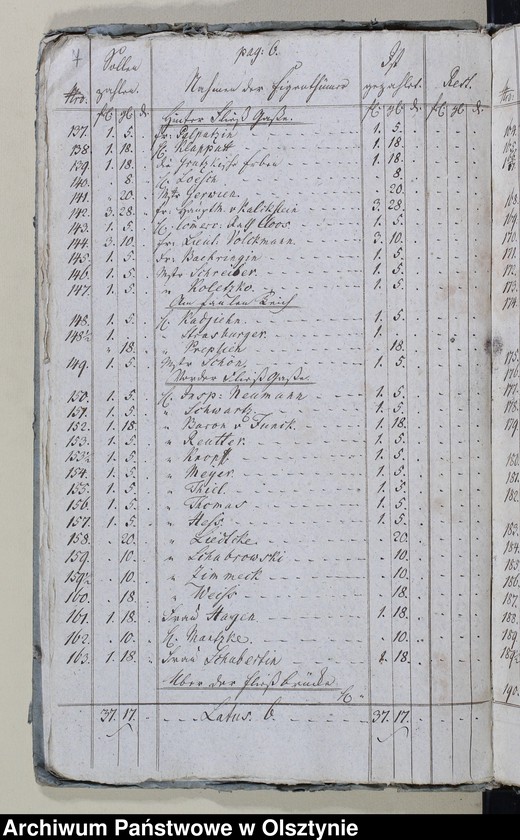 pag: 6.
Sollen zahlen. Ist gezahlet. Rest.
Nro. Nahmen der Eigenthümer
fl. gl. d. fl. gl. d. fl. gl. d.
Hinter Fließ Gaße.
137. 1. 5. Fr: 1. 5.
138. 1. 18. H. Klapputt 1. 18.
139. 1. 18. die Erben 1. 18.
140. 8. H. Loesch 8.
141. 20. Mstr Gerwien. 20.
142. 3. 28. Fr: Hauptm. v Kalckstein 3. 28.
143. 1. 5. H. Comerc: Rath Cloos 1. 5.
144. 3. 10. Fr: Lieut. Volckmann. 3. 10.
145. 1. 5. Fr: 1. 5.
146. 1. 5. Mstr Schreiber. 1. 5.
147. 1. 5. " Koletzko. 1. 5.
Am faulen Teich
148. 1. 5. H. Radziehn. 1. 5.
148½ 1. " Strasburger. 1.
" 18. " 18.
149. 1. 5. Mstr Schön. 1. 5.
Vorder Fließ Gaße.
150. 1. 5. H. Insp: Neumann 1. 5.
151. 1. 5. " Schwartz 1. 5.
152. 1. 18. " Baron v Funck. 1. 18.
153. 1. 5. " Reutter. 1. 5.
153½ 1. 5. " Kropff. 1. 5.
154. 1. 5. " Meyer. 1. 5.
155. 1. 5. " Thiel. 1. 5.
156. 1. 5. " Thomas 1. 5.
157. 1. 5. " Hess. 1. 5.
158. 20. " Liedtcke. 20.
159. 10. " Schabrowski 10.
159½ 10. " Zimmeck 10.
160. 18. " Weiss 18.
161. 1. 18. Frau Hagen 1. 18.
162. 10. H. Mantzke. 10.
163. 1. 18. Frau Schubertin 1. 18.
Über der Fließ brücke
37. 17. Latus. 6. 37. 17.
Archiwum Państwowe w Olsztynie